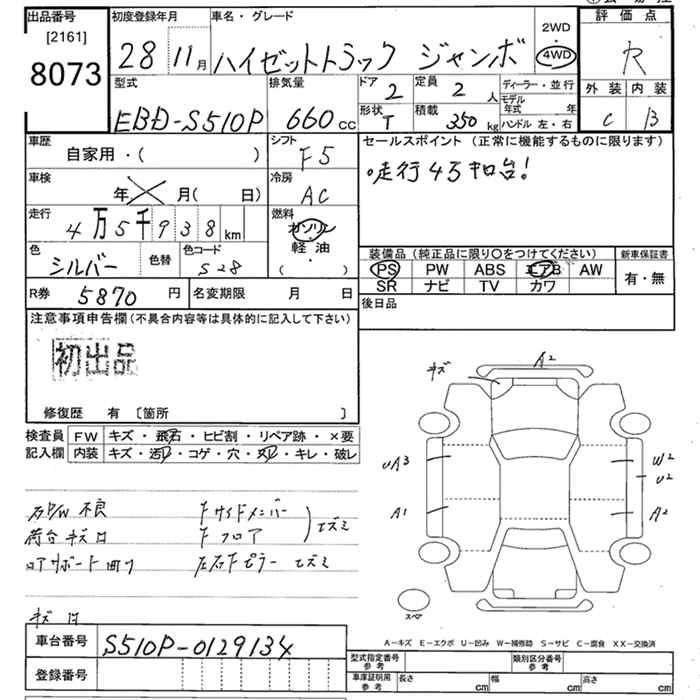 出品番号 初度登録年月 車名・グレード 評価点
[2161] 2WD
8073 28 11月 ハイゼットトラック ジャンボ 4WD R
型式 排気量 ドア 2 定員 2人 ディーラー・並行 外装 内装
EBD-S510P 660cc 形状 T 積載 350kg モデル年式 年 C B
ハンドル 左・右
車歴 シフト セールスポイント (正常に機能するものに限ります)
自家用・( ) F5
車検 冷房 走行4万キロ台!
年 月( 日) AC
走行 燃料
4万5千938km ガソリン
色 色替 色コード 軽油 装備品 (純正品に限り○をつけてください) 新車保証書
シルバー S28 ( ) PS PW ABS エアB AW 有・無
R券 5870円 名変期限 月 日 SR ナビ TV カワ
注意事項申告欄(不具合内容等は具体的に記入して下さい) 後日品
初出品
修復歴 有 〔箇所 〕
検査員 FW キズ・飛石・ヒビ割・リペア跡・×要
記入欄 内装 キズ・汚れ・コゲ・穴・スレ・キレ・破レ
キズ A2
UA3 W2
U2
A1 A2
スペア
P/W不良 Fサイドメンバー
荷台キズ凹 Fフロア
左右Fピラー
キズ 凹
車台番号 S510P-0129134
A−キズ E−エクボ U−凹み W−補修跡 S−サビ C−腐食 XX−交換済
登録番号
型式指定番号 参考 類別区分番号 参考
車庫証明用 参考 長さ cm 幅 cm 高さ cm